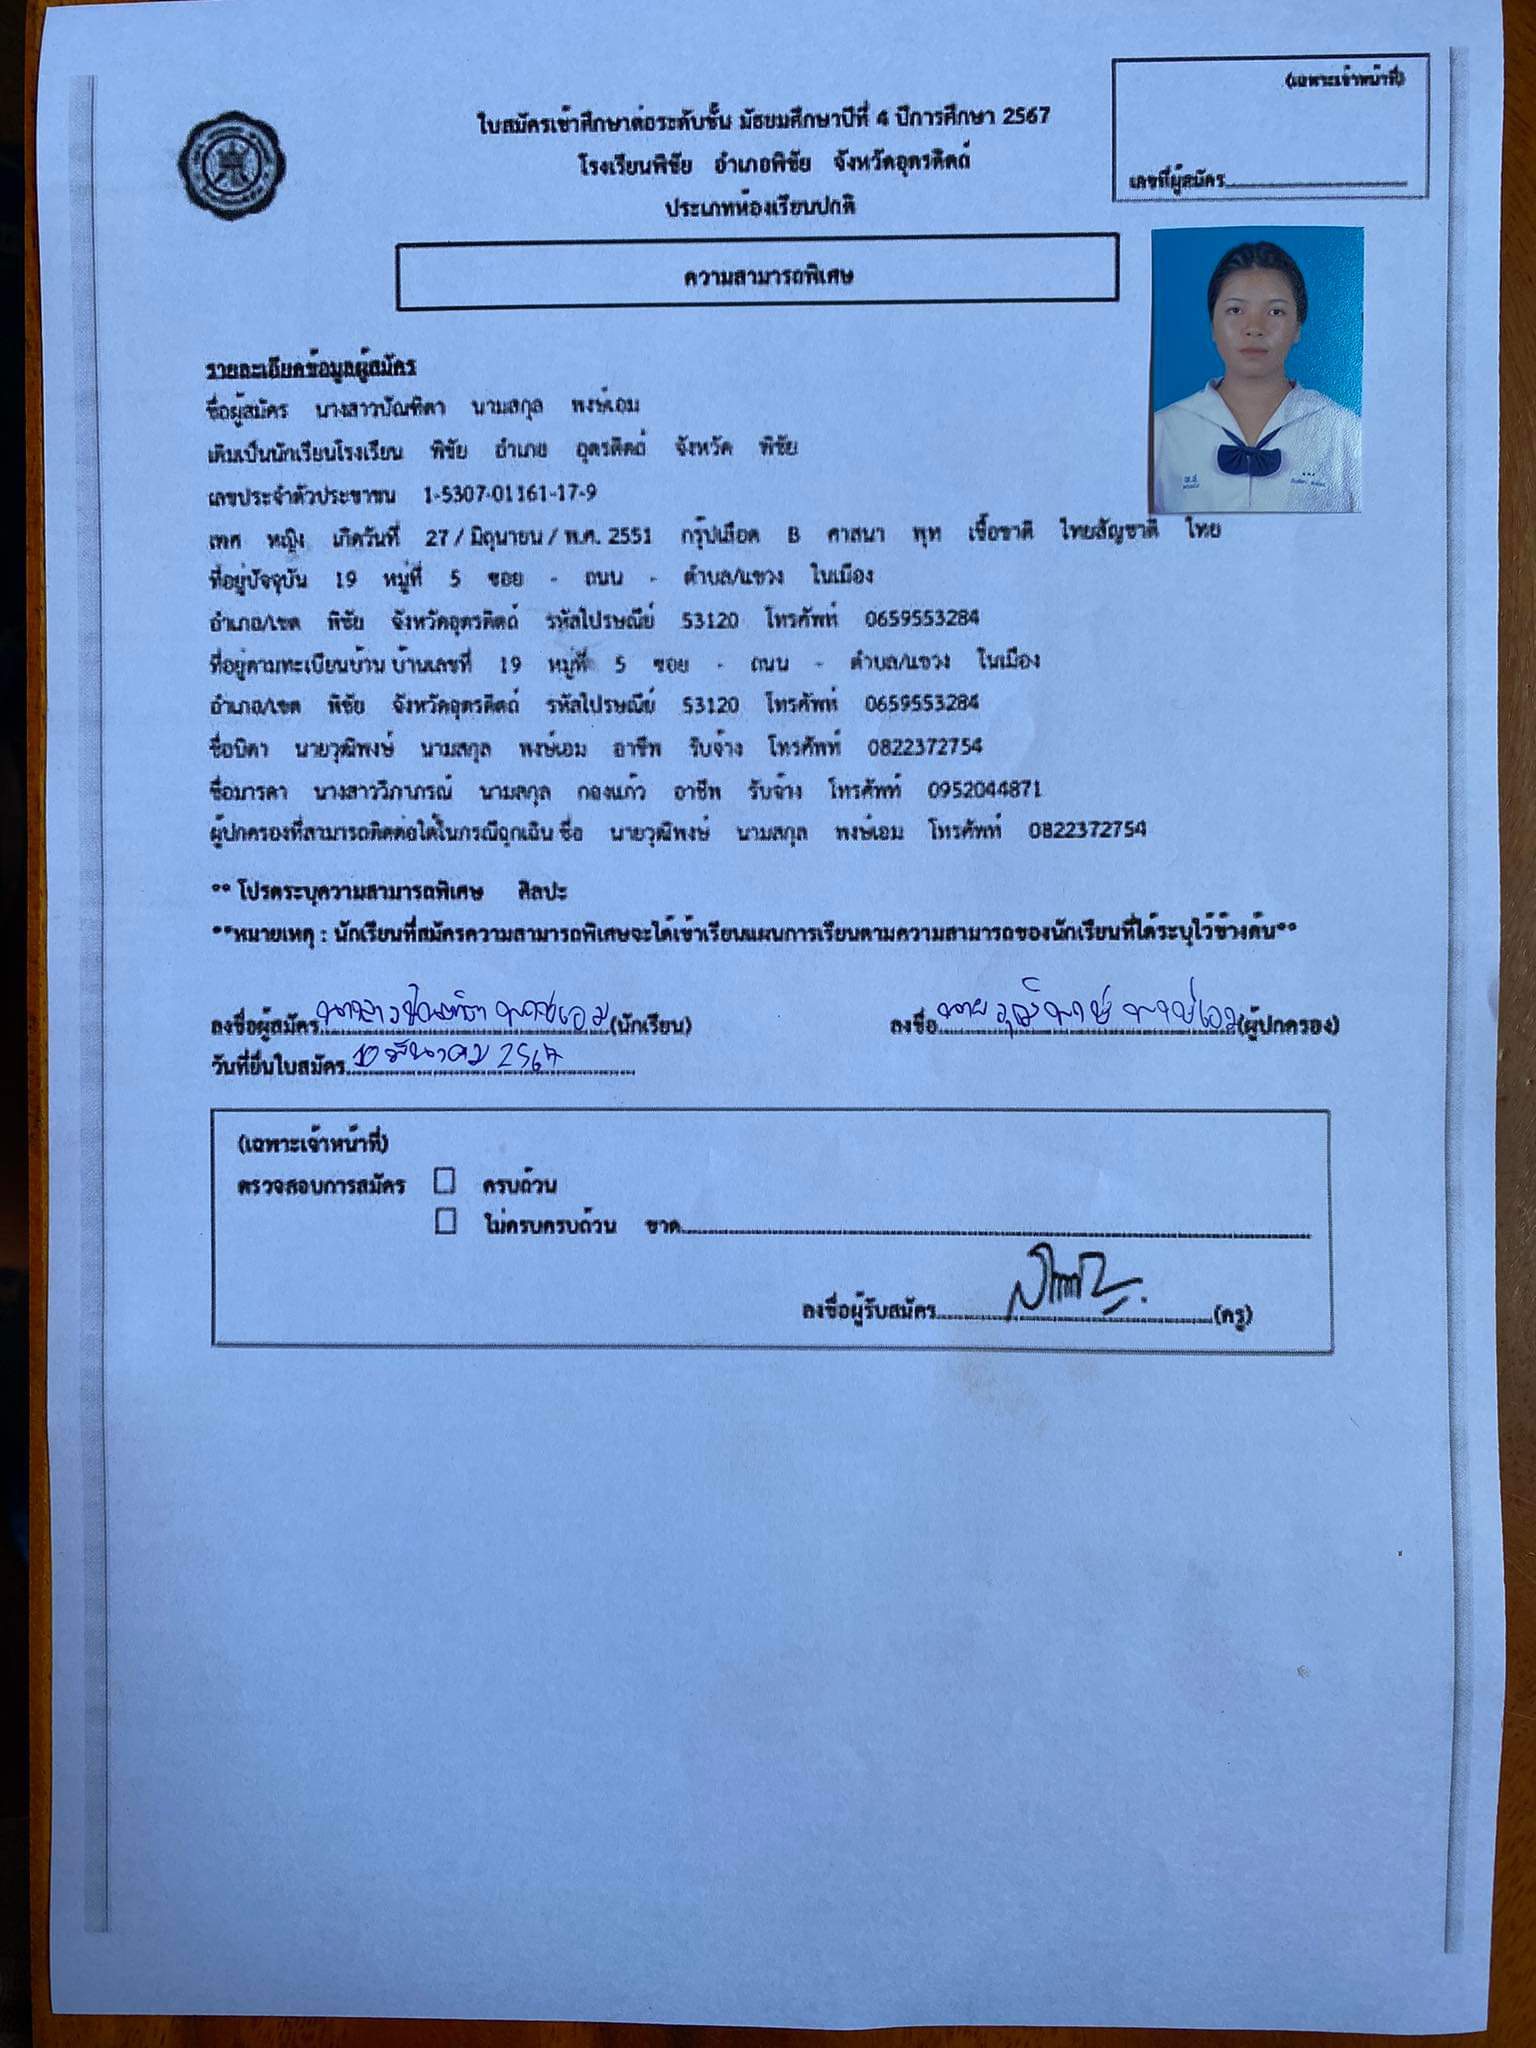 (เฉพาะเจ้าหน้าที่)
ใบสมัครเข้าศึกษาต่อระดับชั้น มัธยมศึกษาปีที่ 4 ปีการศึกษา 2567
โรงเรียนพิชัย อำเภอพิชัย จังหวัดอุตรดิตถ์
เลขที่ผู้สมัคร
ประเภทห้องเรียนปกติ
ความสามารถพิเศษ
รายละเอียดข้อมูลผู้สมัคร
ชื่อผู้สมัคร นางสาวบัณฑิตา นามสกุล พงษ์เอม
เดิมเป็นนักเรียนโรงเรียน พิชัย อำเภอ อุตรดิตถ์ จังหวัด พิชัย
เลขประจำตัวประชาชน 1-5307-01161-17-9
เพศ หญิง เกิดวันที่ 27 / มิถุนายน / พ.ศ. 2551 กรุ๊ปเลือด B ศาสนา พุท เชื้อชาติ ไทยสัญชาติ ไทย
ที่อยู่ปัจจุบัน 19 หมู่ที่ 5 ซอย - ถนน - ตำบล/แขวง ในเมือง
อำเภอ/เขต พิชัย จังหวัดอุตรดิตถ์ รหัสไปรษณีย์ 53120 โทรศัพท์ 0659553284
ที่อยู่ตามทะเบียนบ้าน บ้านเลขที่ 19 หมู่ที่ 5 ซอย - ถนน - ตำบล/แขวง ในเมือง
อำเภอ/เขต พิชัย จังหวัดอุตรดิตถ์ รหัสไปรษณีย์ 53120 โทรศัพท์ 0659553284
ชื่อบิดา นายวุฒิพงษ์ นามสกุล พงษ์เอม อาชีพ รับจ้าง โทรศัพท์ 0822372754
ชื่อมารดา นางสาววิภาภรณ์ นามสกุล กองแก้ว อาชีพ รับจ้าง โทรศัพท์ 0952044871
ผู้ปกครองที่สามารถติดต่อได้ในกรณีฉุกเฉิน ชื่อ นายวุฒิพงษ์ นามสกุล พงษ์เอม โทรศัพท์ 0822372754
** โปรดระบุความสามารถพิเศษ ศิลปะ
**หมายเหตุ : นักเรียนที่สมัครความสามารถพิเศษจะได้เข้าเรียนแผนการเรียนตามความสามารถของนักเรียนที่ได้ระบุไว้ข้างต้น**
ลงชื่อผู้สมัคร นางสาวบัณฑิตา พงษ์เอม (นักเรียน) ลงชื่อ นายวุฒิพงษ์ พงษ์เอม (ผู้ปกครอง)
วันที่ยื่นใบสมัคร 10 มีนาคม 2567
(เฉพาะเจ้าหน้าที่)
ตรวจสอบการสมัคร ครบถ้วน
ไม่ครบครบถ้วน ขาด
ลงชื่อผู้รับสมัคร (ครู)